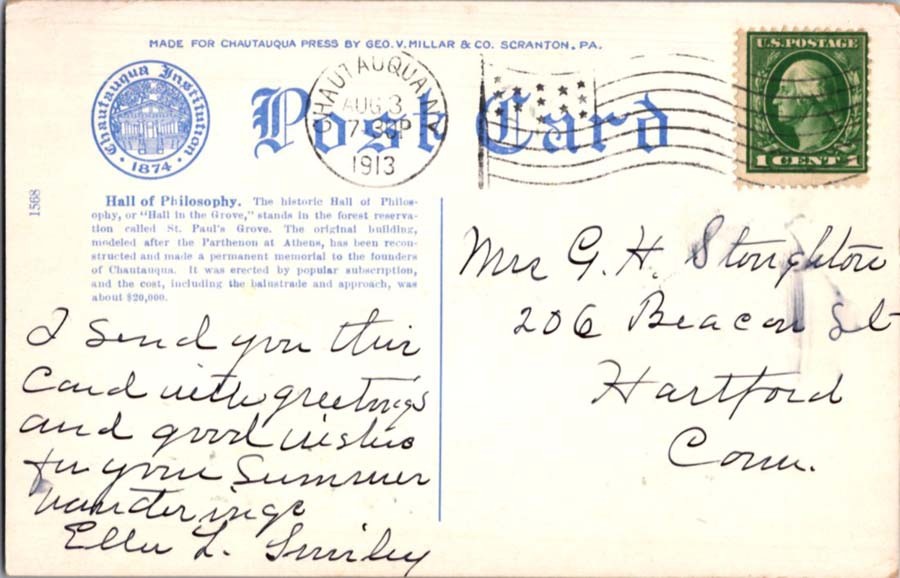 MADE FOR CHAUTAUQUA PRESS BY GEO. V. MILLAR & CO. SCRANTON, PA.
Chautauqua Institution
• 1874 •
Post Card
CHAUTAUQUA, N.Y.
AUG 3
7-30P
1913
U.S. POSTAGE
1 CENT 1
1568
Hall of Philosophy. The historic Hall of Philos-
ophy, or "Hall in the Grove," stands in the forest reserva-
tion called St. Paul's Grove. The original building,
modeled after the Parthenon at Athens, has been recon-
structed and made a permanent memorial to the founders
of Chautauqua. It was erected by popular subscription,
and the cost, including the balustrade and approach, was
about $20,000.
I send you this
card with greetings
and good wishes
for your summer
wanderings
Ella L. Smiley
Mrs G. H. Stoughton
206 Beacon St
Hartford
Conn.